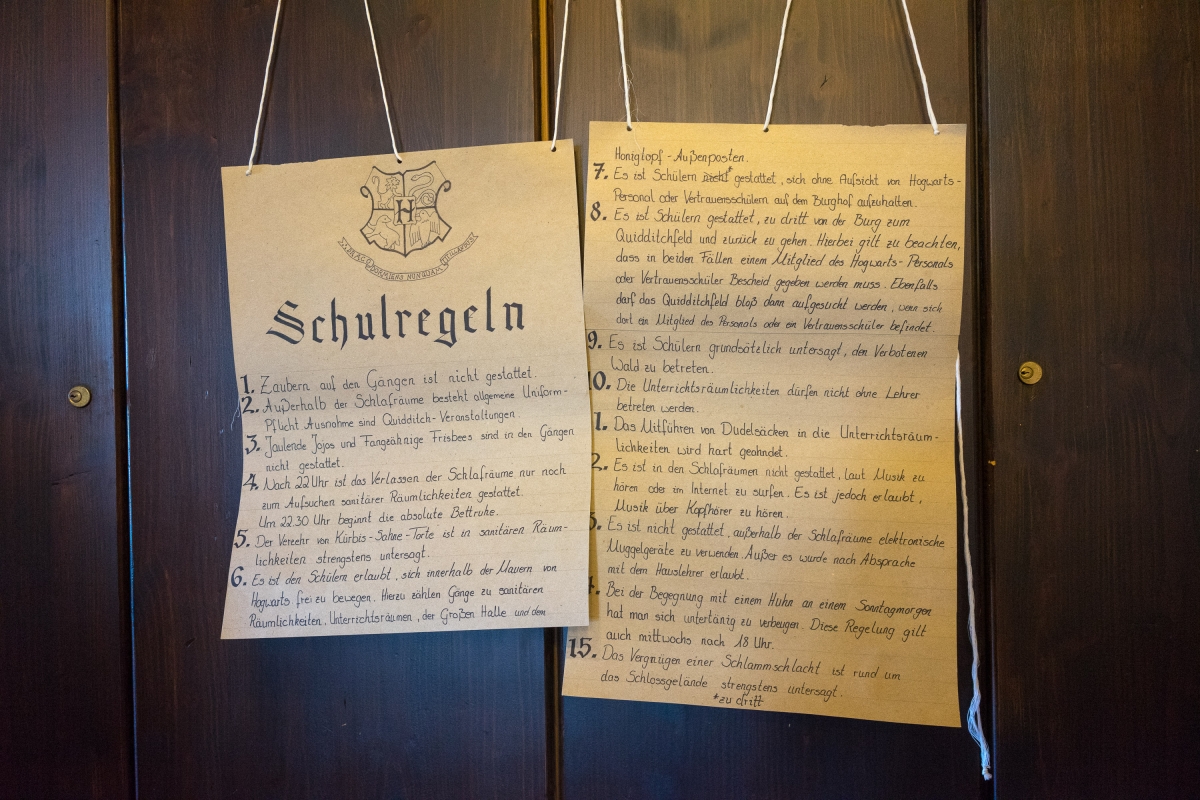 H
DRACO DORMIENS NUNQUAM TITILLANDUS
Schulregeln
1. Zaubern auf den Gängen ist nicht gestattet.
2. Außerhalb der Schlafräume besteht allgemeine Uniform-
Pflicht Ausnahme sind Quidditch-Veranstaltungen.
3. Jaulende Jojos und Fangzähnige Frisbees sind in den Gängen
nicht gestattet.
4. Nach 22 Uhr ist das Verlassen der Schlafräume nur noch
zum Aufsuchen sanitärer Räumlichkeiten gestattet.
Um 22.30 Uhr beginnt die absolute Bettruhe.
5. Der Verzehr von Kürbis-Sahne-Torte ist in sanitären Räum-
lichkeiten strengstens untersagt.
6. Es ist den Schülern erlaubt, sich innerhalb der Mauern von
Hogwarts frei zu bewegen. Hierzu zählen Gänge zu sanitären
Räumlichkeiten, Unterrichtsräumen, der Großen Halle und dem
Honigtopf-Außenposten.
7. Es ist Schülern nicht* gestattet, sich ohne Aufsicht von Hogwarts-
Personal oder Vertrauensschülern auf dem Burghof aufzuhalten.
8. Es ist Schülern gestattet, zu dritt von der Burg zum
Quidditchfeld und zurück zu gehen. Hierbei gilt zu beachten,
dass in beiden Fällen einem Mitglied des Hogwarts-Personals
oder Vertrauensschüler Bescheid gegeben werden muss. Ebenfalls
darf das Quidditchfeld bloß dann aufgesucht werden, wenn sich
dort ein Mitglied des Personals oder ein Vertrauensschüler befindet.
9. Es ist Schülern grundsätzlich untersagt, den Verbotenen
Wald zu betreten.
10. Die Unterrichtsräumlichkeiten dürfen nicht ohne Lehrer
betreten werden.
1. Das Mitführen von Dudelsäcken in die Unterrichtsräum-
lichkeiten wird hart geahndet.
2. Es ist in den Schlafräumen nicht gestattet, laut Musik zu
hören oder im Internet zu surfen. Es ist jedoch erlaubt,
Musik über Kopfhörer zu hören.
3. Es ist nicht gestattet, außerhalb der Schlafräume elektronische
Muggelgeräte zu verwenden. Außer es wurde nach Absprache
mit dem Hauslehrer erlaubt.
4. Bei der Begegnung mit einem Huhn an einem Sonntagmorgen
hat man sich untertänig zu verbeugen. Diese Regelung gilt
auch mittwochs nach 18 Uhr.
15. Das Vergnügen einer Schlammschlacht ist rund um
das Schlossgelände strengstens untersagt.
*zu dritt